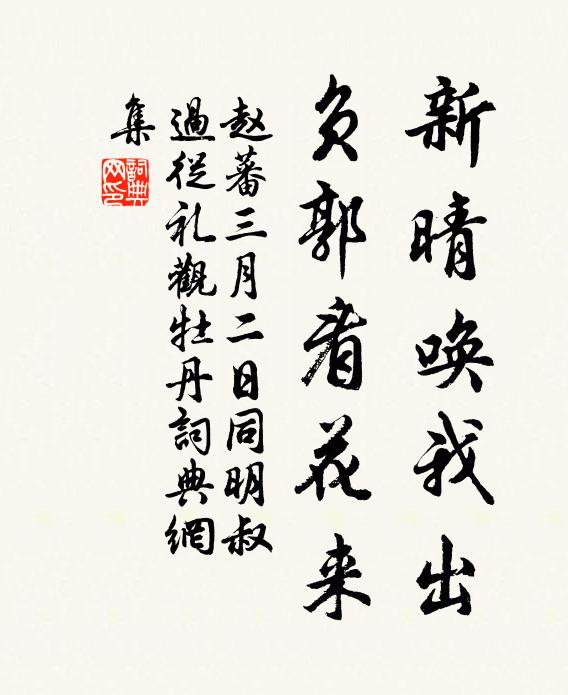 新晴唤我出
负郭看花来
赵蕃三月二日同明叔
過從礼觀牡丹詞典網
集
詞典网印